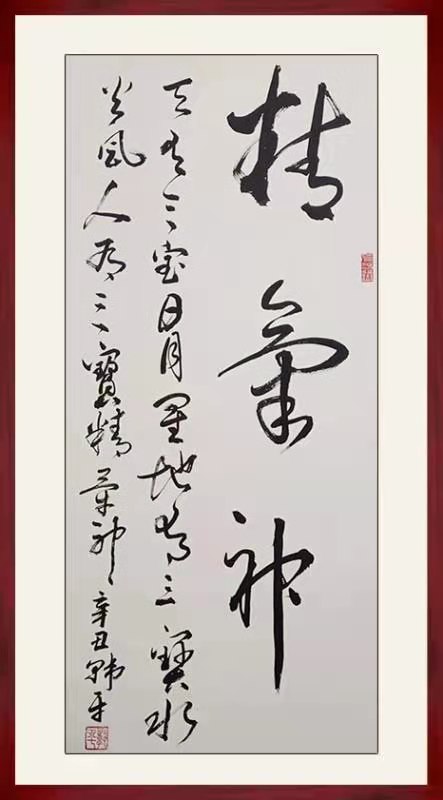 精氣神
天有三宝日月星地有三寶水
火风人有三寶精氣神辛丑韩平